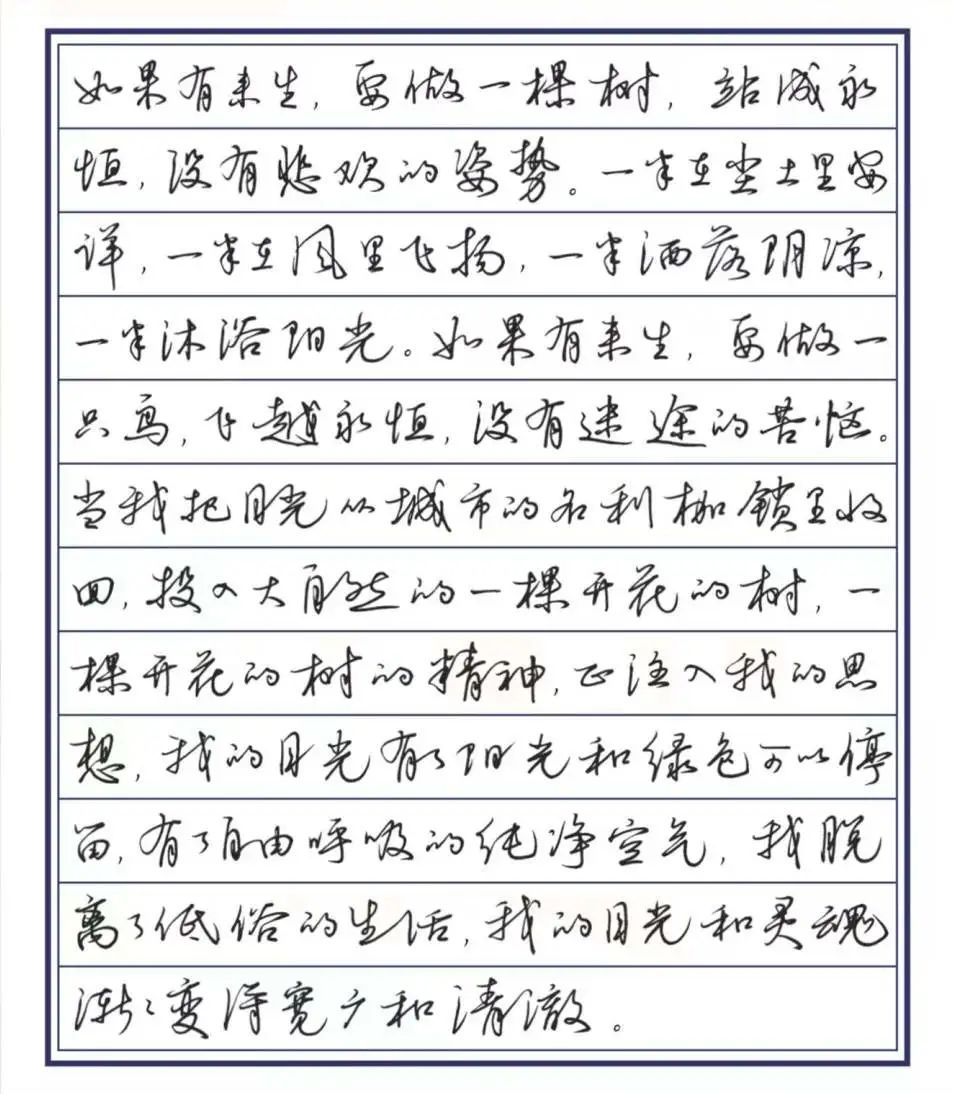 如果有来生，要做一棵树，站成永
恒，没有悲欢的姿势。一半在尘土里安
详，一半在风里飞扬，一半洒落阴凉，
一半沐浴阳光。如果有来生，要做一
只鸟，飞越永恒，没有迷途的苦恼。
当我把目光从城市的名利枷锁里收
回，投入大自然的一棵开花的树，一
棵开花的树的精神，正注入我的思
想，我的目光有了阳光和绿色可以停
留，有了自由呼吸的纯净空气，我脱
离了低俗的生活，我的目光和灵魂
渐渐变得宽广和清澈。